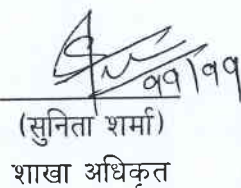 ११/११
(सुनिता शर्मा)
शाखा अधिकृत